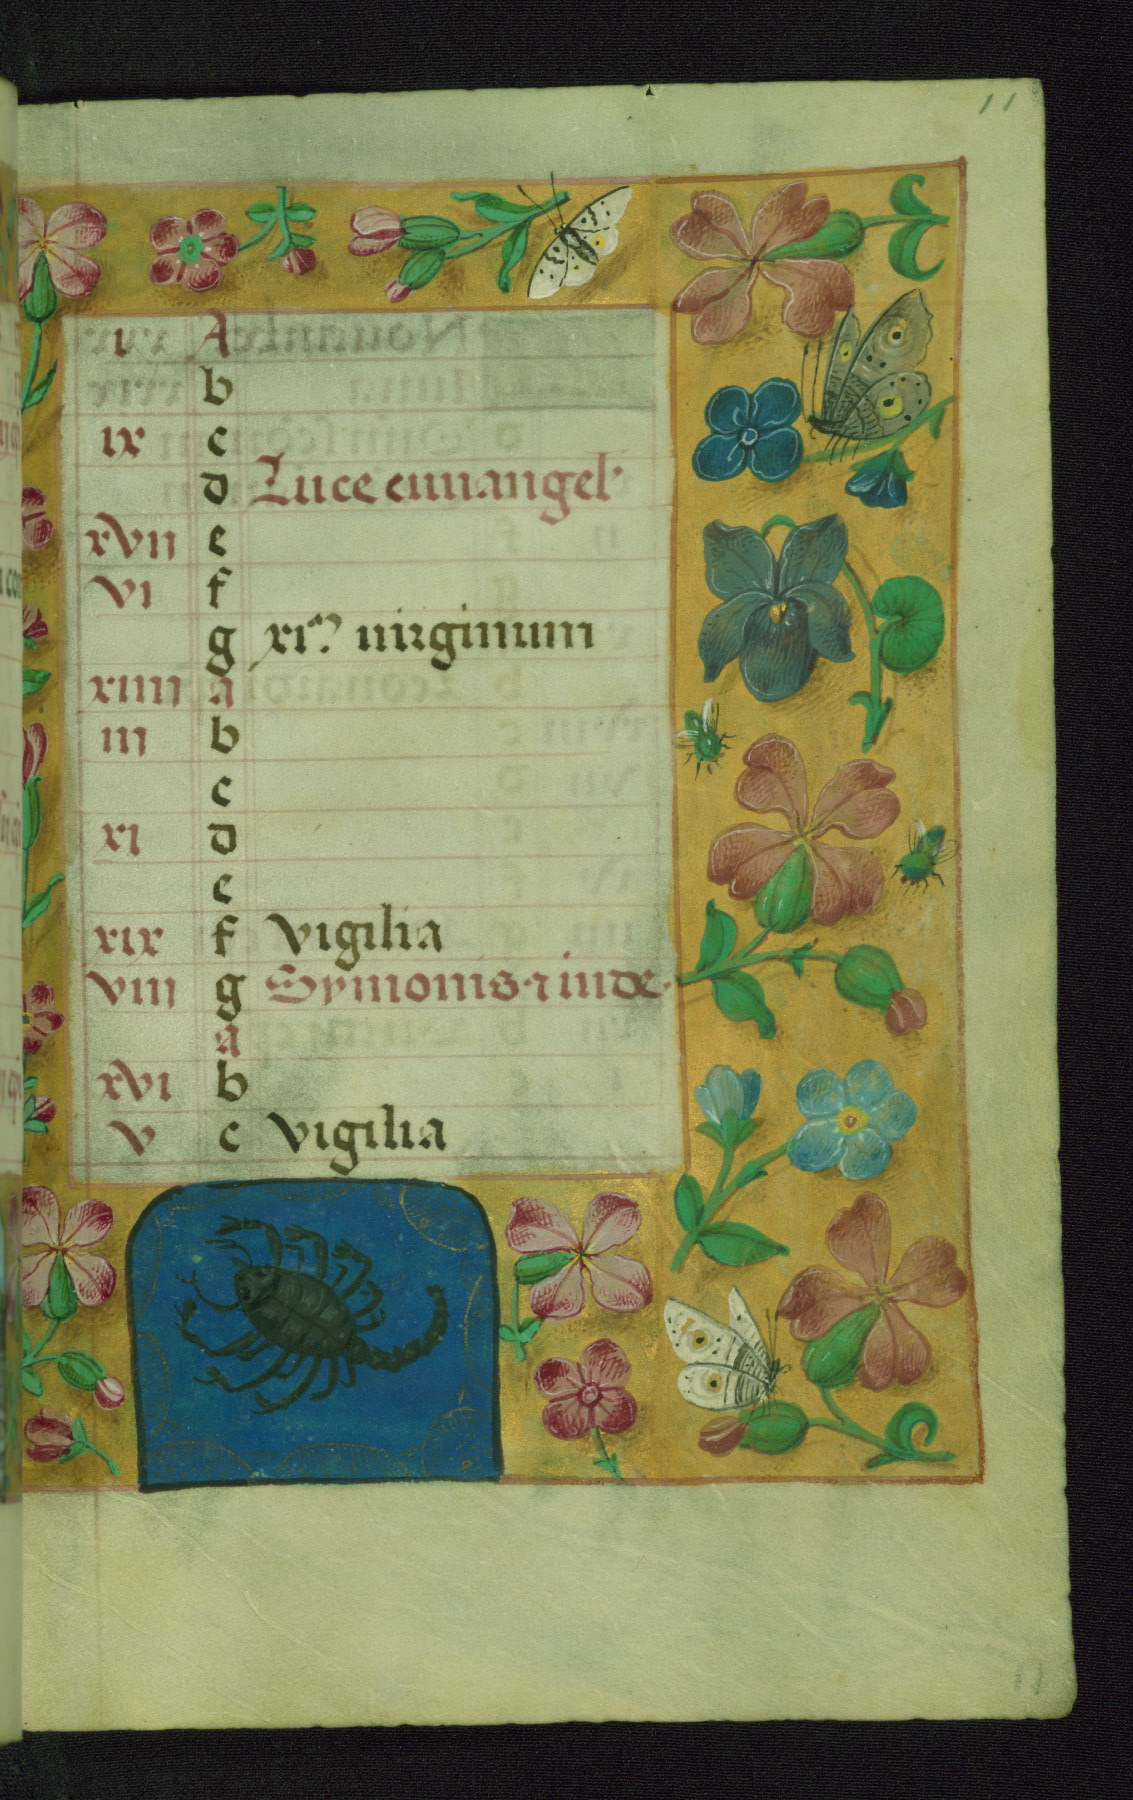 11
i A
b
ix c
d Luce euuangel'
xvii e
vi f
g xi᷎ uirginum
xiiii a
iii b
c
xi d
e
xix f vigilia
viii g Symonis ⁊ iude
a
xvi b
v c vigilia
11